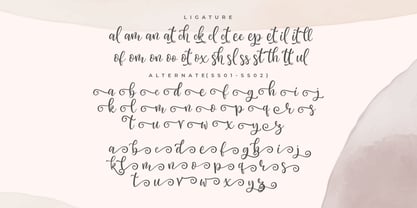 LIGATURE
al am an at ch ck d ct ee ep et il it ll
of om on oo ot ox sh sl ss st th tt ul
ALTERNATE(SS01-SS02)
a b c d e f g h i j
k l m n o p q r s
t u v w x y z
a b c d e f g h i j
k l m n o p q r s
t u v w x y z